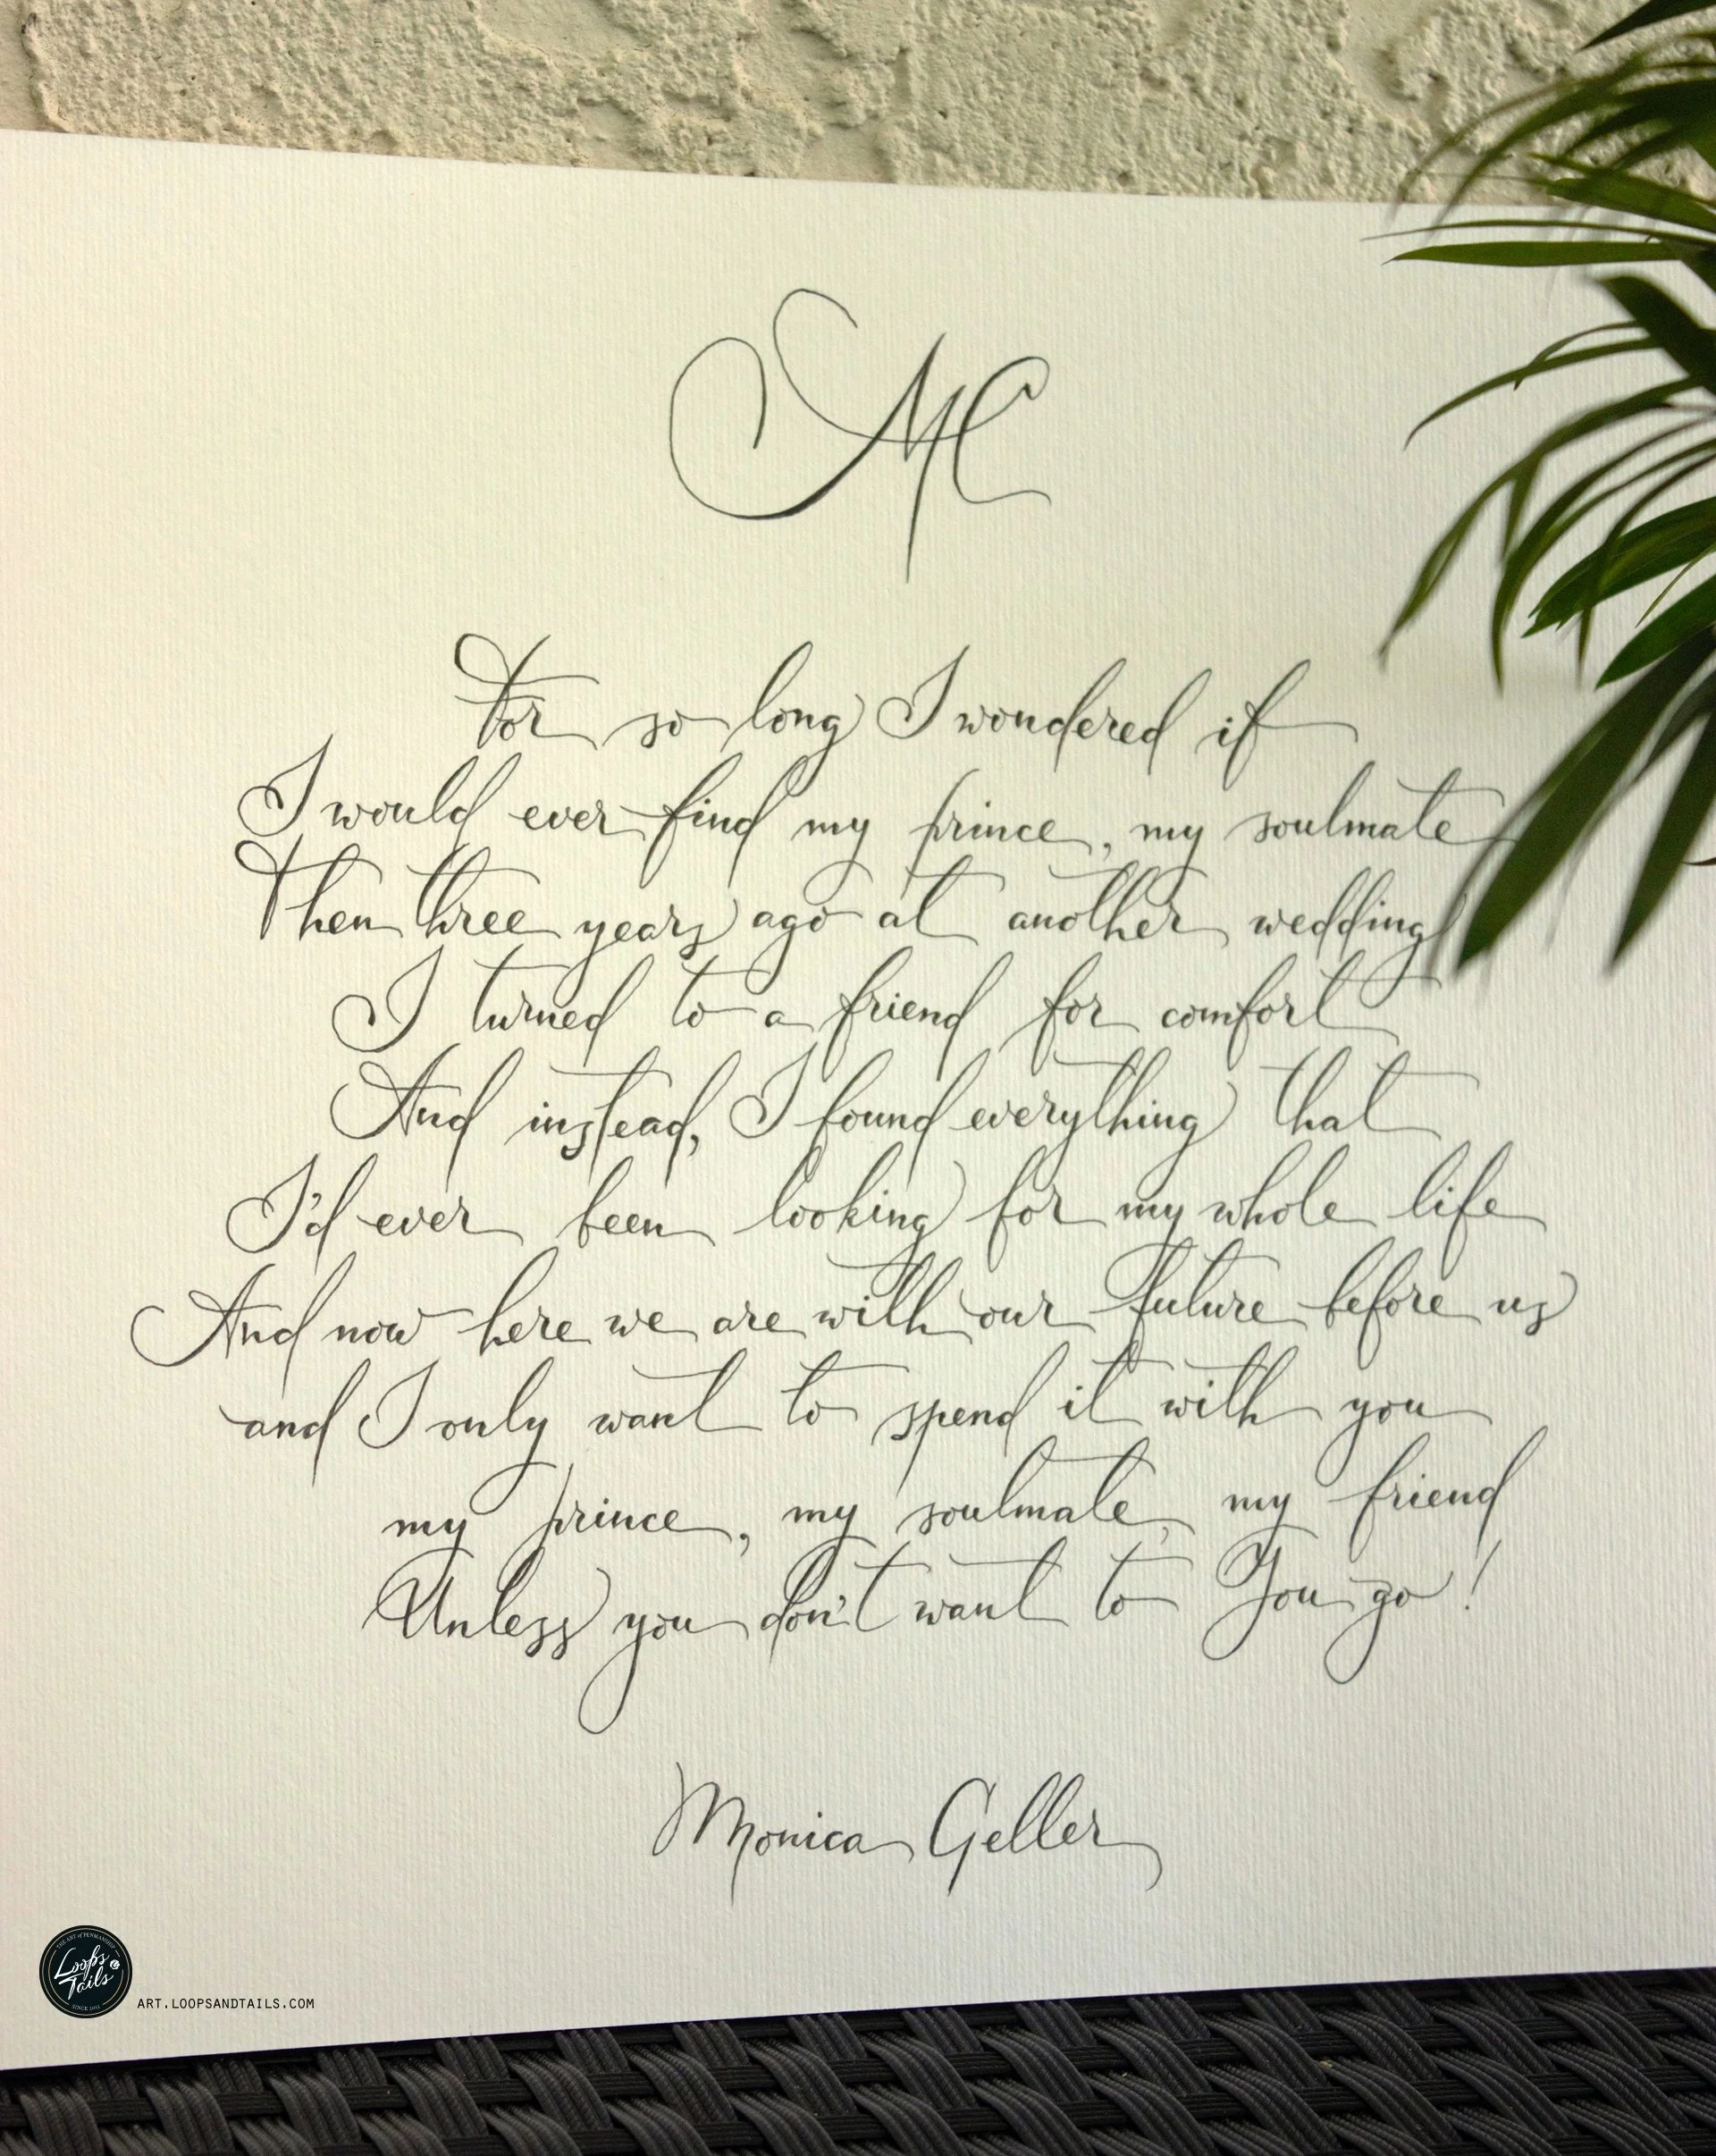 MC
For so long I wondered if
I would ever find my prince, my soulmate
Then three years ago at another wedding
I turned to a friend for comfort
And instead, I found everything that
I'd ever been looking for my whole life
And now here we are with our future before us
and I only want to spend it with you
my prince, my soulmate, my friend
Unless you don't want to You go!
Monica Geller
THE ART of PENMANSHIP
Loops & Tails
SINCE
ART.LOOPSANDTAILS.COM